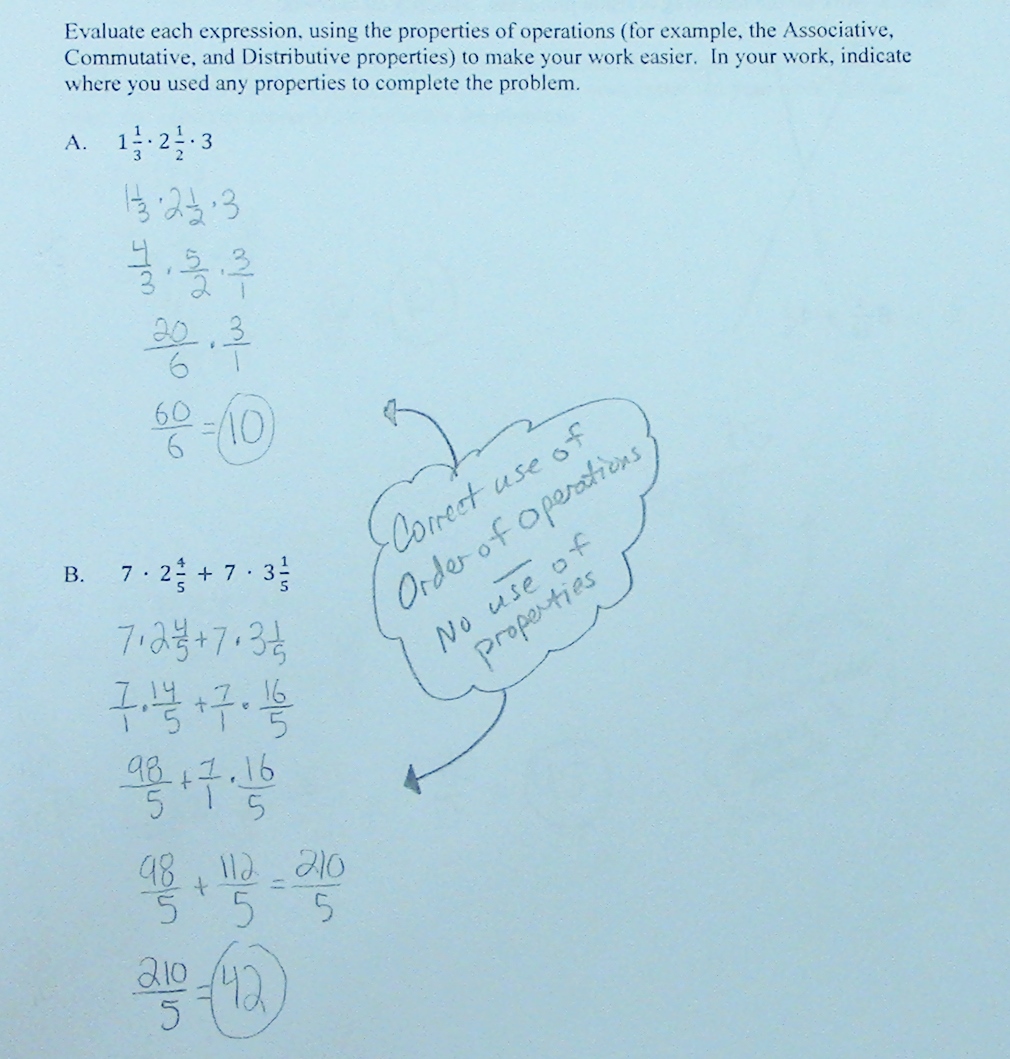 Evaluate each expression, using the properties of operations (for example, the Associative,
Commutative, and Distributive properties) to make your work easier. In your work, indicate
where you used any properties to complete the problem.
A. 1 1/3 · 2 1/2 · 3
1 1/3 · 2 1/2 · 3
4/3 · 5/2 · 3/1
20/6 · 3/1
60/6 = 10
Correct use of
Order of Operations
—
No use of
properties
B. 7 · 2 4/5 + 7 · 3 1/5
7 · 2 4/5 + 7 · 3 1/5
7/1 · 14/5 + 7/1 · 16/5
98/5 + 7/1 · 16/5
98/5 + 112/5 = 210/5
210/5 = 42